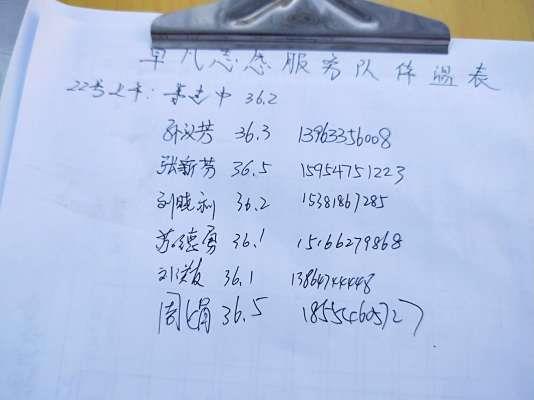 卓凡志愿服务队体温表
22号上午: 建中 36.2
孙汉芳 36.3 13963356008
张新芳 36.5 15954751223
刘晓利 36.2 15381867285
苏德勇 36.1 15166279868
刘 36.1 13864744448
周娟 36.5 18554605727